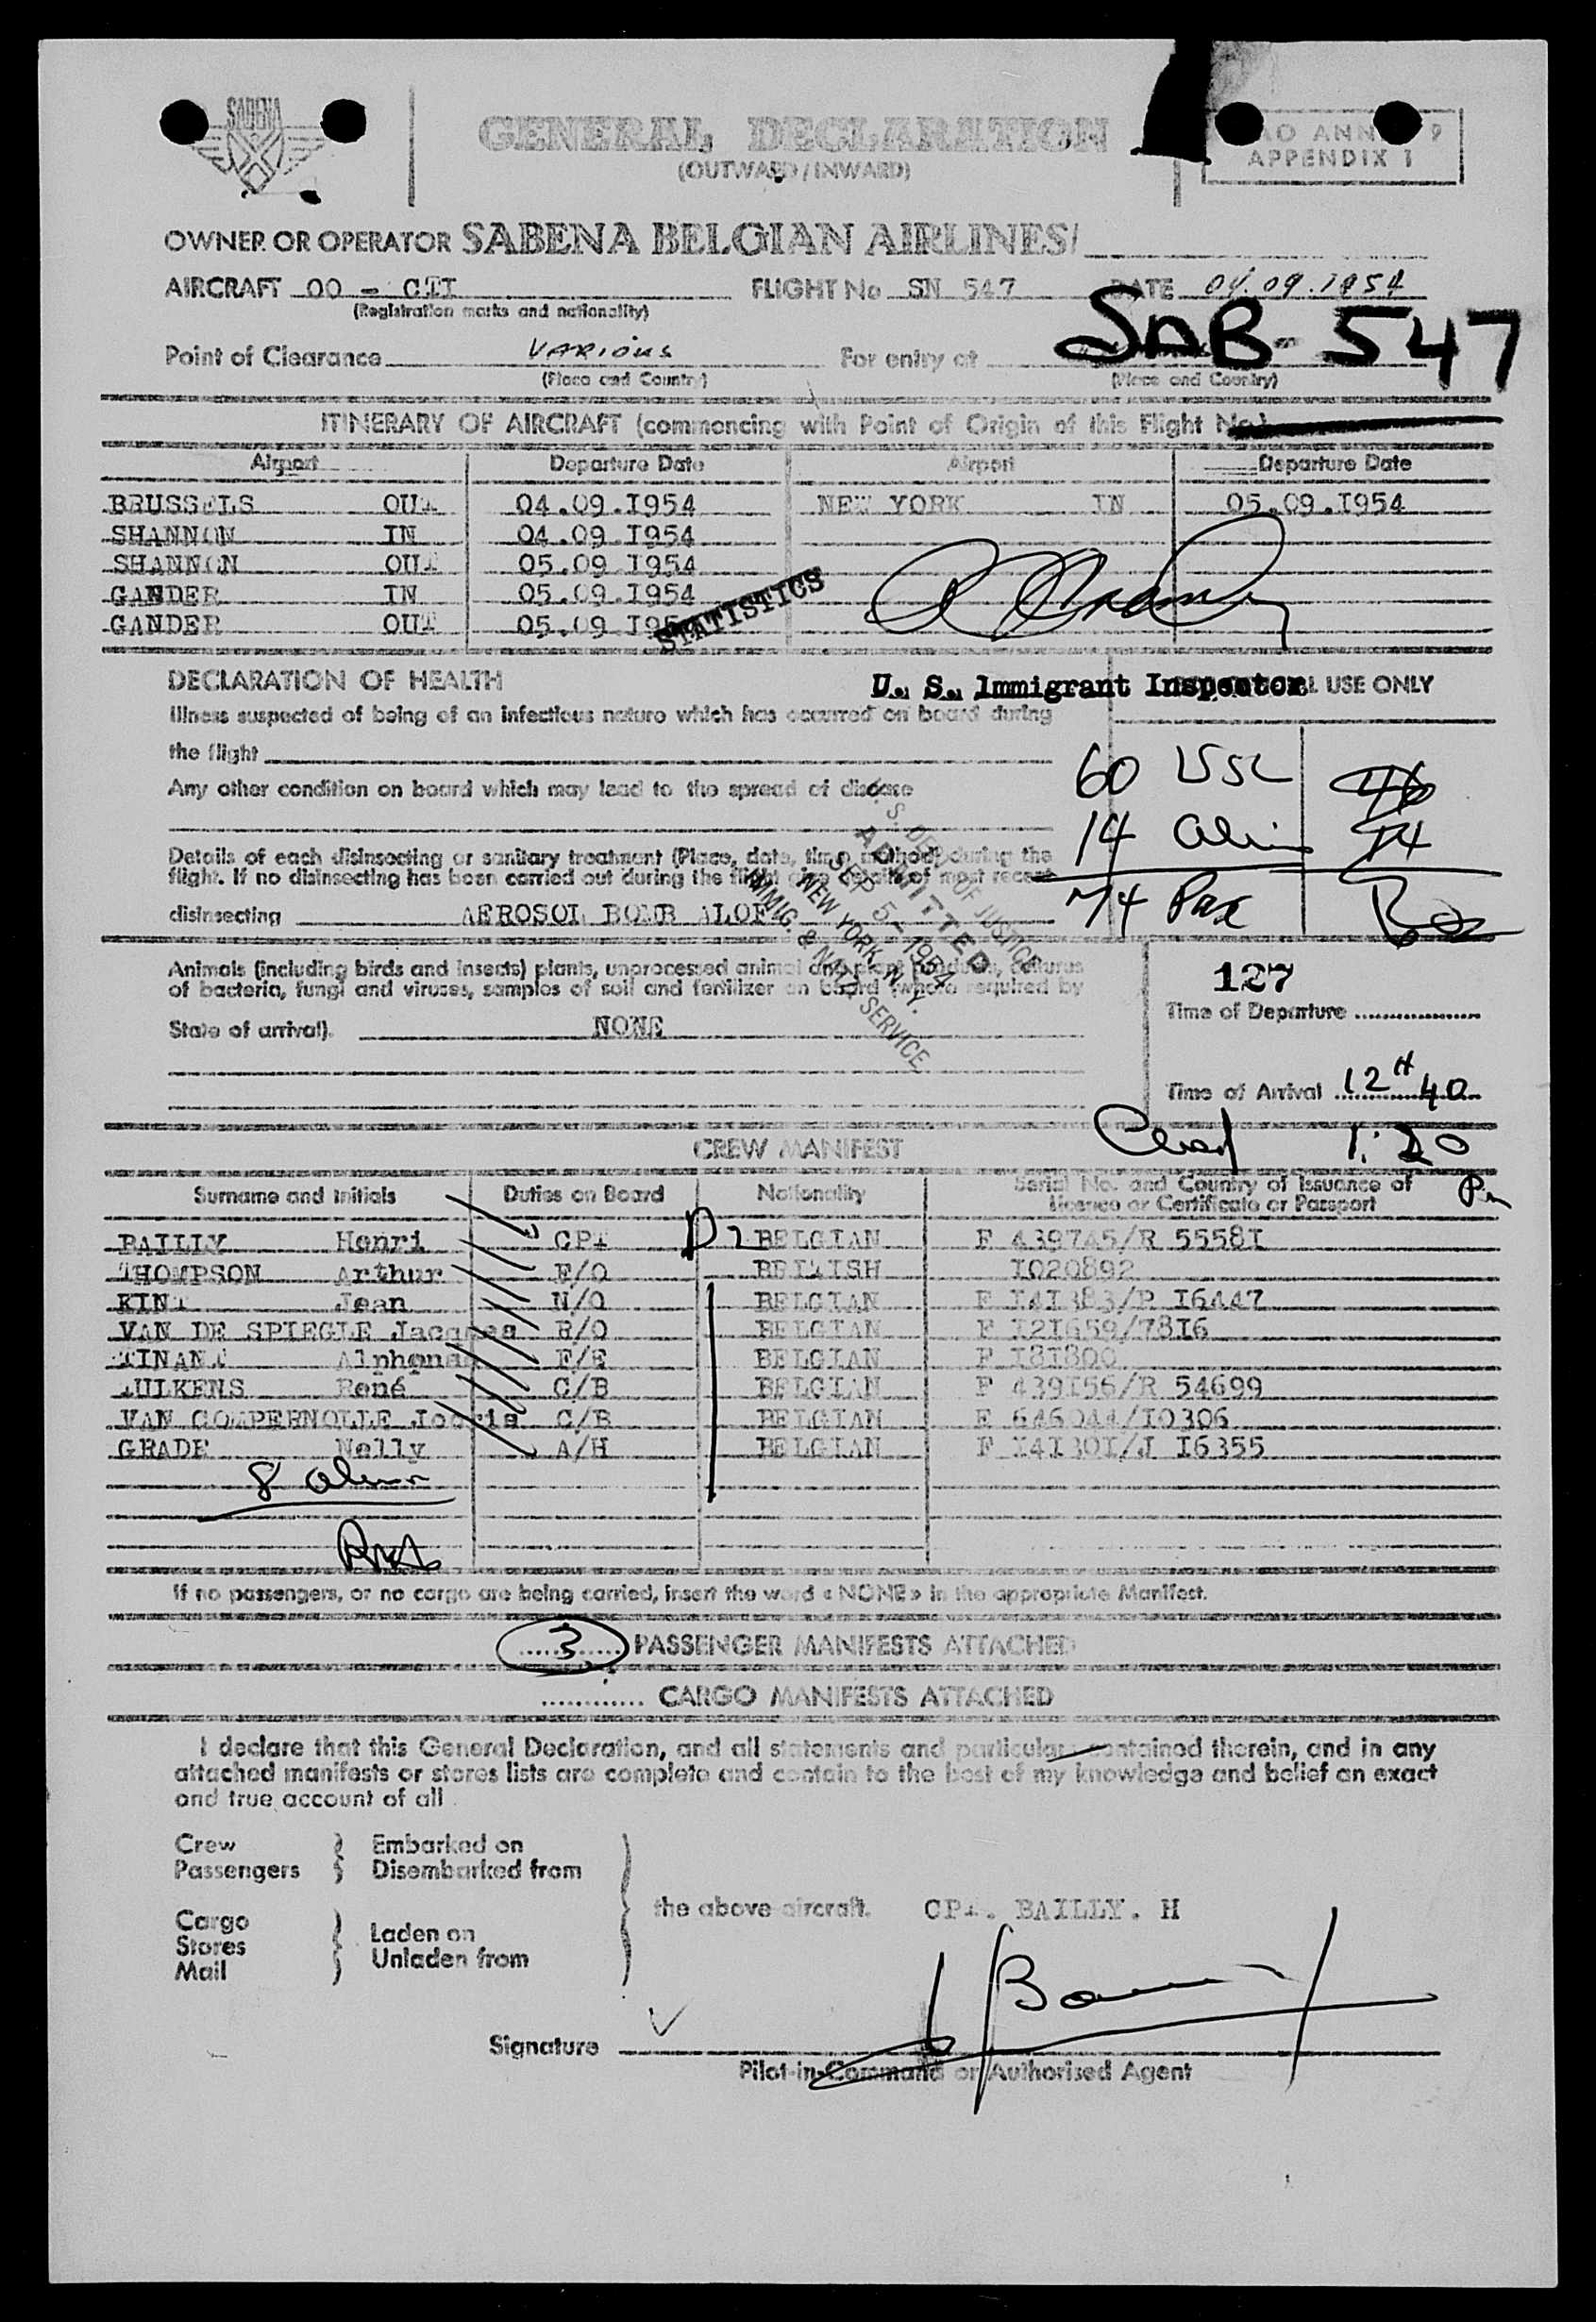 SABENA
GENERAL DECLARATION
(OUTWARD/INWARD)
APPENDIX 1
OWNER OR OPERATOR SABENA BELGIAN AIRLINES/
AIRCRAFT OO - CTI FLIGHT No SN 547 DATE 04.09.1954
(Registration marks and nationality)
SAB-547
Point of Clearance VARIOUS For entry at
(Place and Country) (Place and Country)
ITINERARY OF AIRCRAFT (commencing with Point of Origin of this Flight No.)
Airport Departure Date Airport Departure Date
BRUSSELS OUT 04.09.1954 NEW YORK IN 05.09.1954
SHANNON IN 04.09.1954
SHANNON OUT 05.09.1954
GANDER IN 05.09.1954
GANDER OUT 05.09.195
STATISTICS
DECLARATION OF HEALTH U. S. Immigrant Inspector USE ONLY
Illness suspected of being of an infectious nature which has occurred on board during
the flight
60 USC 46
Any other condition on board which may lead to the spread of disease
14 14
Details of each disinsecting or sanitary treatment (Place, date, time, method) during the
flight. If no disinsecting has been carried out during the flight give details of most recent
74 Pax
disinsecting AEROSOL BOMB ALOF
U. S. DEPT. OF JUSTICE
ADMITTED
SEP 5 - 1954
NEW YORK, N. Y.
IMMIG. & NATZ. SERVICE
Animals (including birds and insects) plants, unprocessed animal and plant products, cultures
of bacteria, fungi and viruses, samples of soil and fertilizer on board (where required by
State of arrival). NONE
127
Time of Departure
Time of Arrival 12H40
1:20
Pm
CREW MANIFEST
Surname and Initials Duties on Board Nationality Serial No. and Country of Issuance of
Licence or Certificate or Passport
BAILLY Henri CPT D2 BELGIAN F 439745/R 5558I
THOMPSON Arthur F/O BRITISH I020892
KINT Jean N/O BELGIAN F I4I383/P I6447
VAN DE SPIEGLE Jacques R/O BELGIAN F I2I659/78I6
TINANT Alphonse F/E BELGIAN F I8I800
TULKENS René C/B BELGIAN F 439I56/R 54699
VAN COMPERNOLLE Jooris C/B BELGIAN E 646044/I0306
GRADE Nelly A/H BELGIAN F I4I30I/J I6355
8
If no passengers, or no cargo are being carried, insert the word «NONE» in the appropriate Manifest.
3 PASSENGER MANIFESTS ATTACHED
............ CARGO MANIFESTS ATTACHED
I declare that this General Declaration, and all statements and particulars contained therein, and in any
attached manifests or stores lists are complete and contain to the best of my knowledge and belief an exact
and true account of all
Crew Embarked on
Passengers Disembarked from
the above aircraft. CPT. BAILLY. H
Cargo Laden on
Stores Unladen from
Mail
Signature
Pilot-in-Command or Authorised Agent